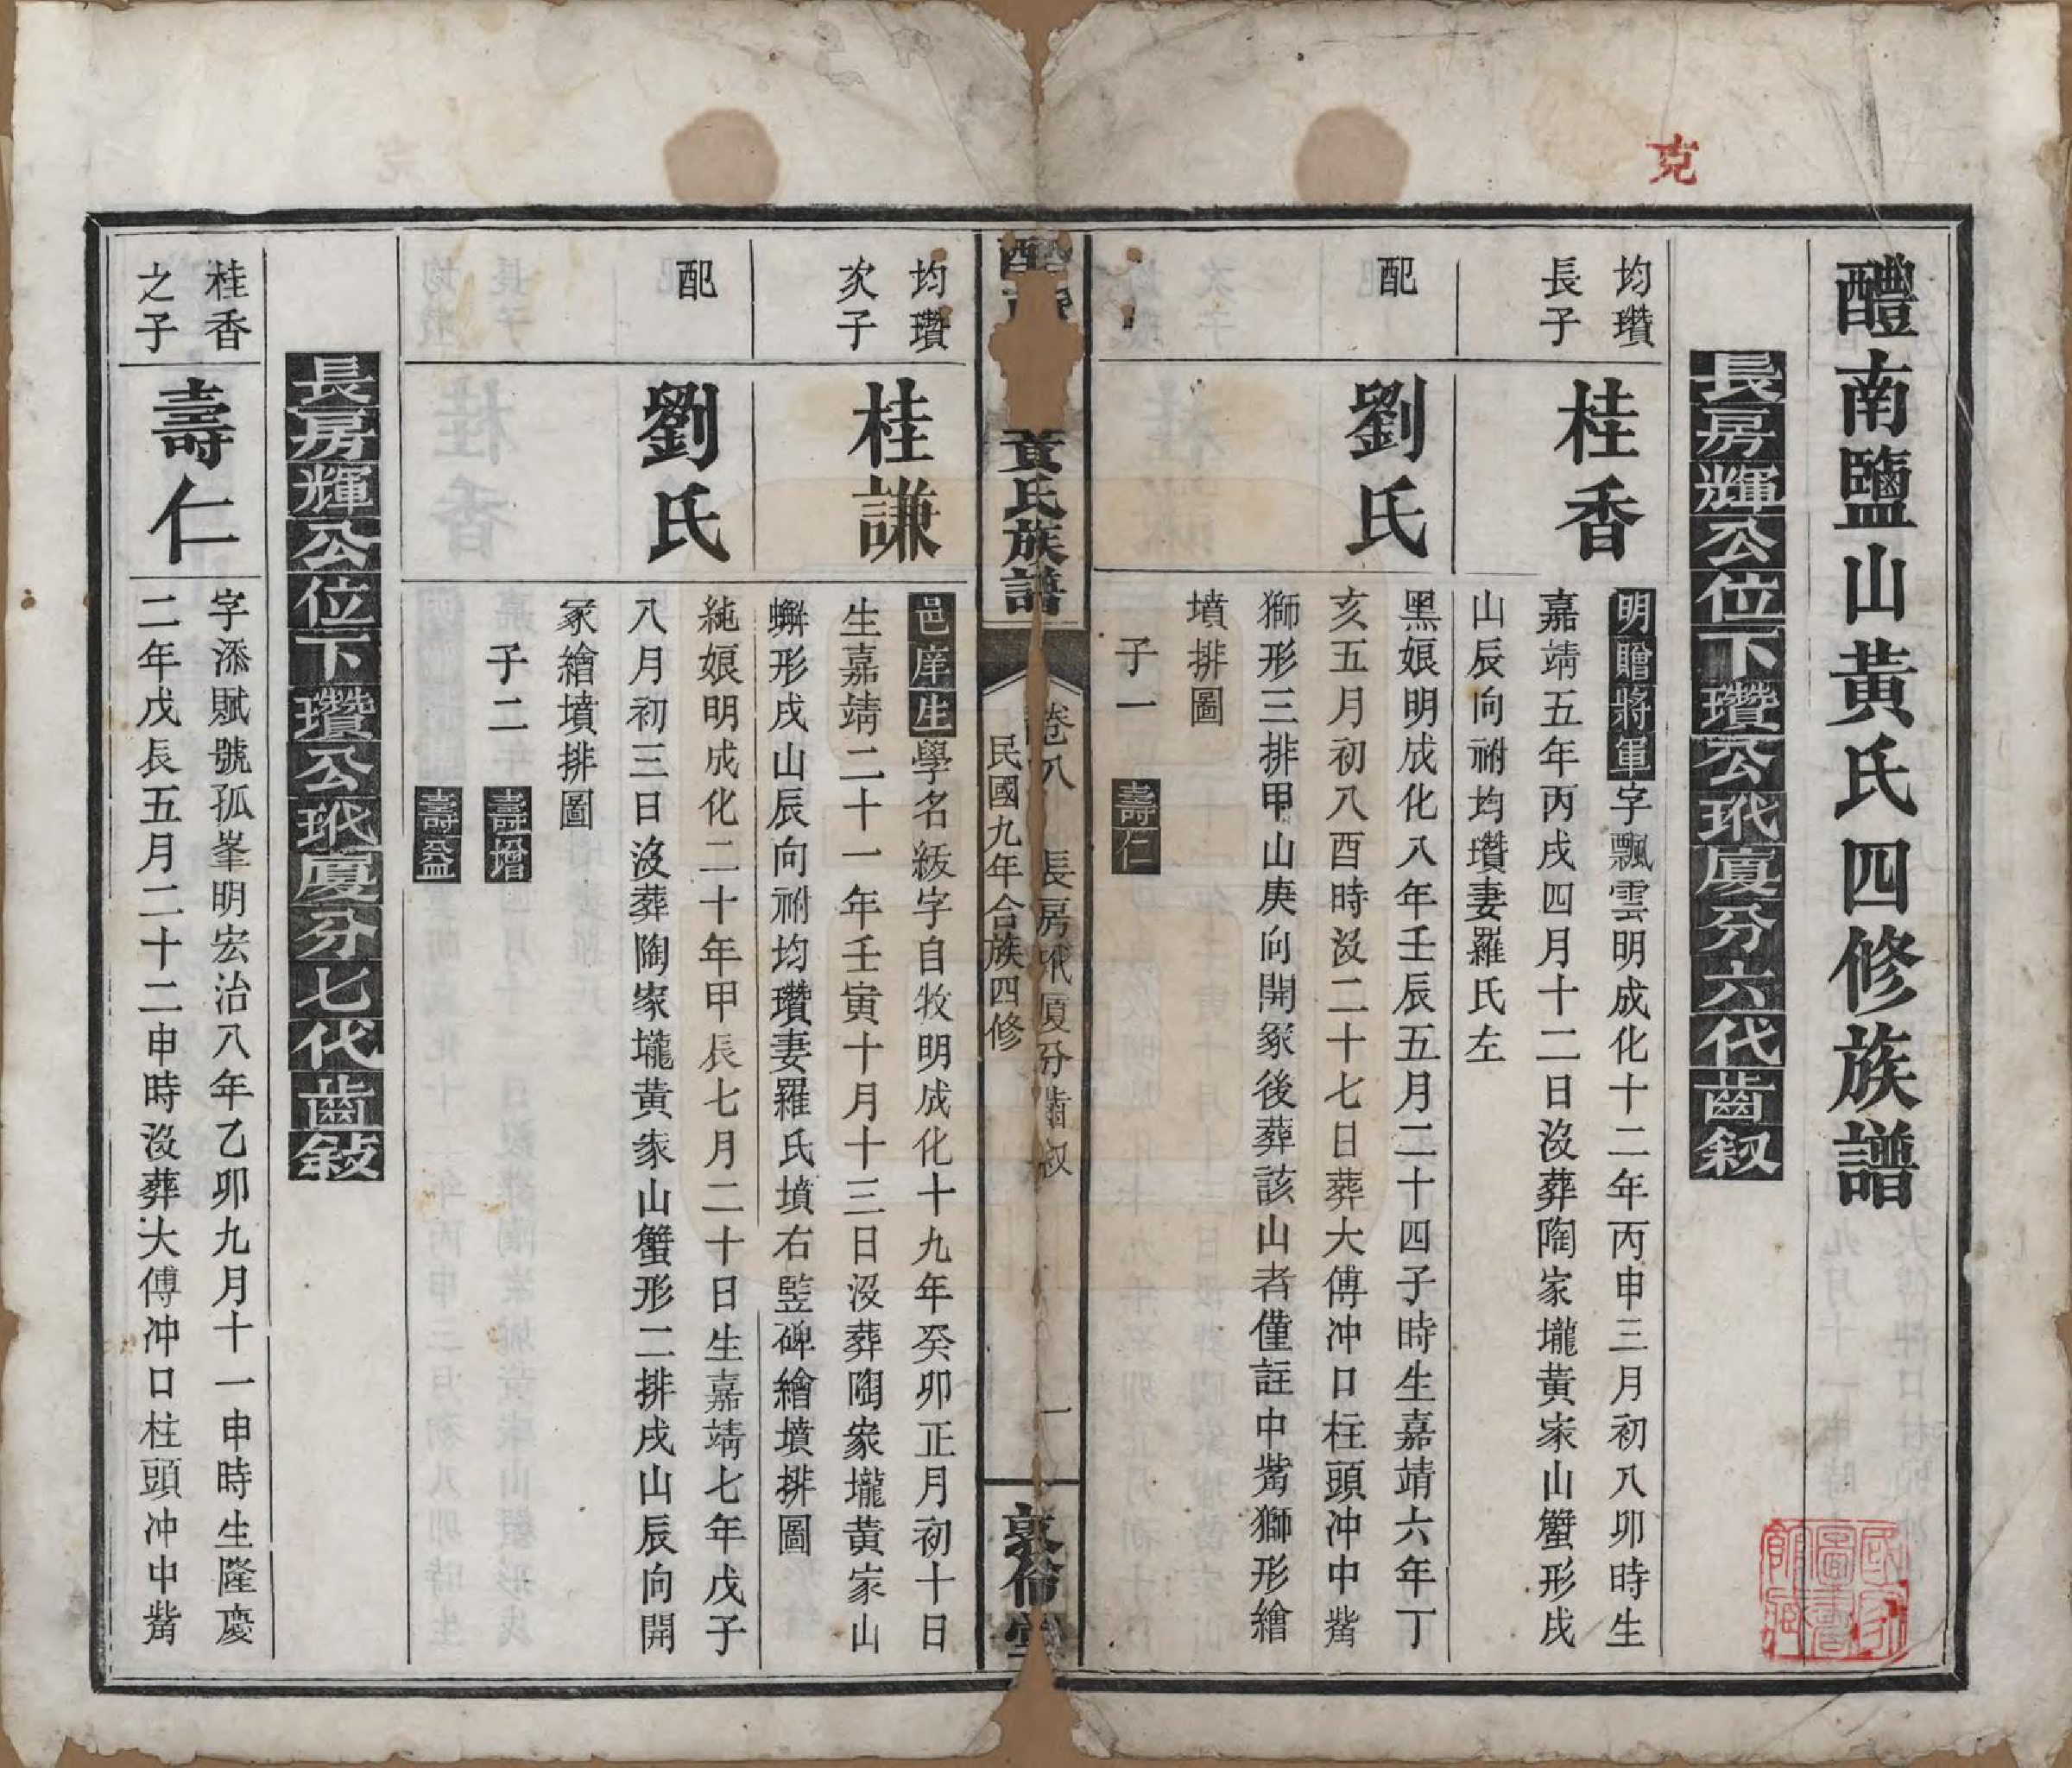 克
醴南鹽山黃氏四修族譜
長房輝公位下瓚公玳廈分六代齒叙
均瓚
長子
桂香
明贈將軍字飄雲明成化十二年丙申三月初八卯時生
嘉靖五年丙戌四月十二日沒葬陶家壠黃家山蟹形戌
山辰向祔均瓚妻羅氏左
配
劉氏
黑娘明成化八年壬辰五月二十四子時生嘉靖六年丁
亥五月初八酉時沒二十七日葬大傅冲口柱頭冲中觜
獅形三排甲山庚向開冢後葬該山者僅註中觜獅形繪
墳排圖
子一 壽仁
黃氏族譜
卷八 長房玳厦分齒叙 一
民國九年合族四修
敦倫堂
均瓚
次子
桂謙
邑庠生學名紱字自牧明成化十九年癸卯正月初十日
生嘉靖二十一年壬寅十月十三日沒葬陶家壠黃家山
蠏形戌山辰向祔均瓚妻羅氏墳右竪碑繪墳排圖
配
劉氏
純娘明成化二十年甲辰七月二十日生嘉靖七年戊子
八月初三日沒葬陶家壠黃家山蟹形二排戌山辰向開
冢繪墳排圖
子二 壽增
壽益
長房輝公位下瓚公玳廈分七代齒敍
桂香
之子
壽仁
字添賦號孤峯明宏治八年乙卯九月十一申時生隆慶
二年戊辰五月二十二申時沒葬大傅冲口柱頭冲中觜